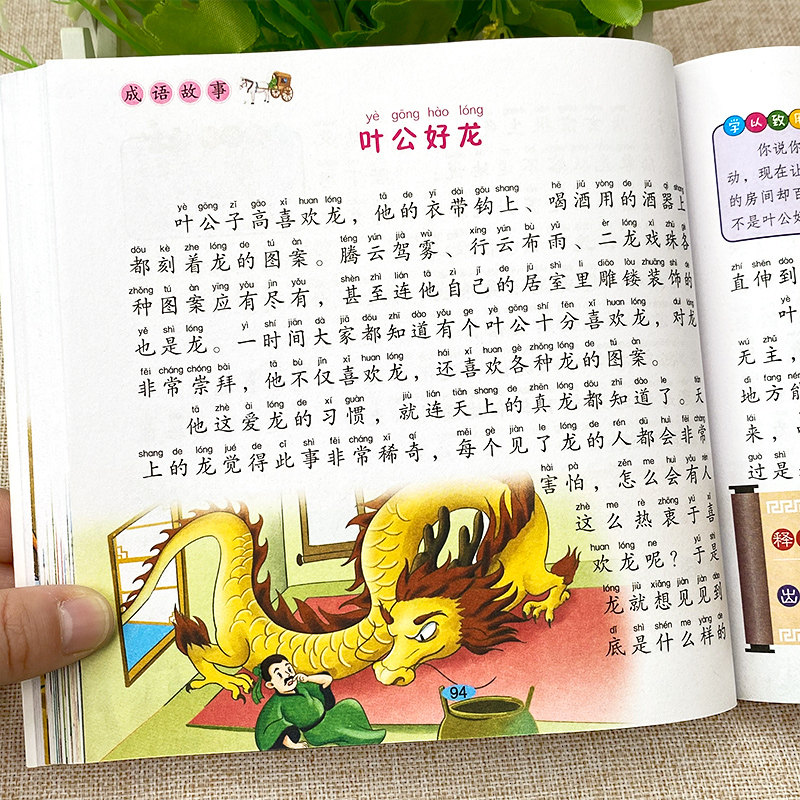 成语故事
yè gōng hào lóng
叶公好龙
yè gōng zǐ gāo xǐ huan lóng tā de yī dài gōu shang hē jiǔ yòng de jiǔ qì shang
叶公子高喜欢龙，他的衣带钩上、喝酒用的酒器上
dōu kè zhe lóng de tú àn téng yún jià wù xíng yún bù yǔ èr lóng xì zhū gè
都刻着龙的图案。腾云驾雾、行云布雨、二龙戏珠各
zhǒng tú àn yīng yǒu jìn yǒu shèn zhì lián tā zì jǐ de jū shì li diāo lòu zhuāng shì de
种图案应有尽有，甚至连他自己的居室里雕镂装饰的
yě shì lóng yì shí jiān dà jiā dōu zhī dào yǒu ge yè gōng shí fēn xǐ huan lóng duì lóng
也是龙。一时间大家都知道有个叶公十分喜欢龙，对龙
fēi cháng chóng bài tā bù jǐn xǐ huan lóng hái xǐ huan gè zhǒng lóng de tú àn
非常崇拜，他不仅喜欢龙，还喜欢各种龙的图案。
tā zhè ài lóng de xí guàn jiù lián tiān shang de zhēn lóng dōu zhī dào le tiān
他这爱龙的习惯，就连天上的真龙都知道了。天
shang de lóng jué de cǐ shì fēi cháng xī qí měi gè jiàn le lóng de rén dōu huì fēi cháng
上的龙觉得此事非常稀奇，每个见了龙的人都会非常
hài pà zěn me huì yǒu rén
害怕，怎么会有人
zhè me rè zhōng yú xǐ
这么热衷于喜
huan lóng ne yú shì
欢龙呢？于是
lóng jiù xiǎng jiàn jiàn dào
龙就想见见到
dǐ shì shén me yàng de
底是什么样的
94
学以致用
你说你
动，现在让
的房间却百
不是叶公好
zhí shēn dào
直伸到
叶
wú zhǔ
无主，
dì fang néng
地方能
lái
来，
guò shì
过是
释
凶